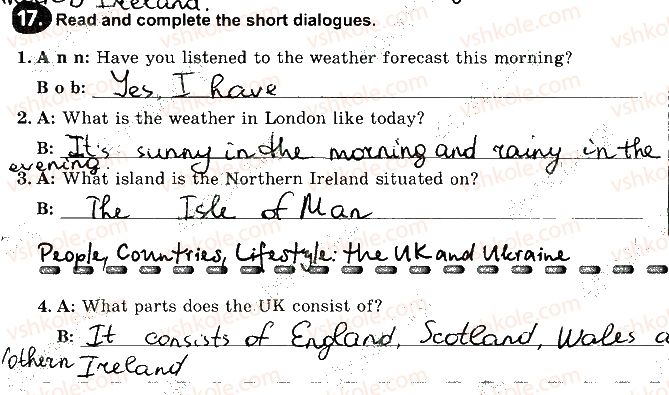 Ireland.
17. Read and complete the short dialogues.
1. A n n: Have you listened to the weather forecast this morning?
B o b: Yes, I have
2. A: What is the weather in London like today?
B: It's sunny in the morning and rainy in the
evening.
3. A: What island is the Northern Ireland situated on?
B: The Isle of Man
People, Countries, Lifestyle: the UK and Ukraine
4. A: What parts does the UK consist of?
B: It consists of England, Scotland, Wales a
Nothern Ireland